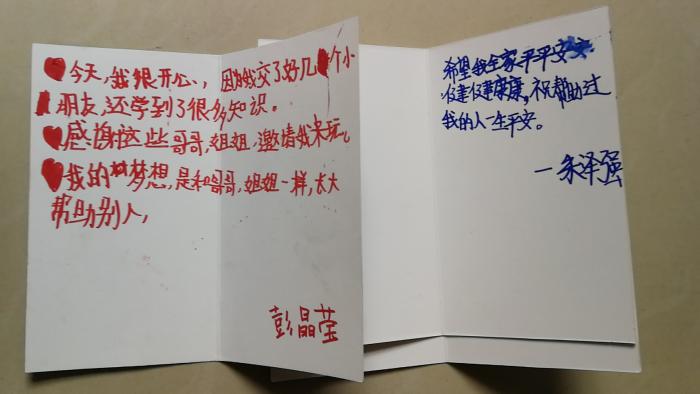 今天,我很开心,因为我交了好几个小
朋友,还学到了很多知识。
感谢这些哥哥,姐姐,邀请我来玩。
我的梦想,是和哥哥,姐姐一样,长大
帮助别人,
彭晶莹
希望我全家平平安安
健健康康,祝帮助过
我的人一生平安。
—朱泽强